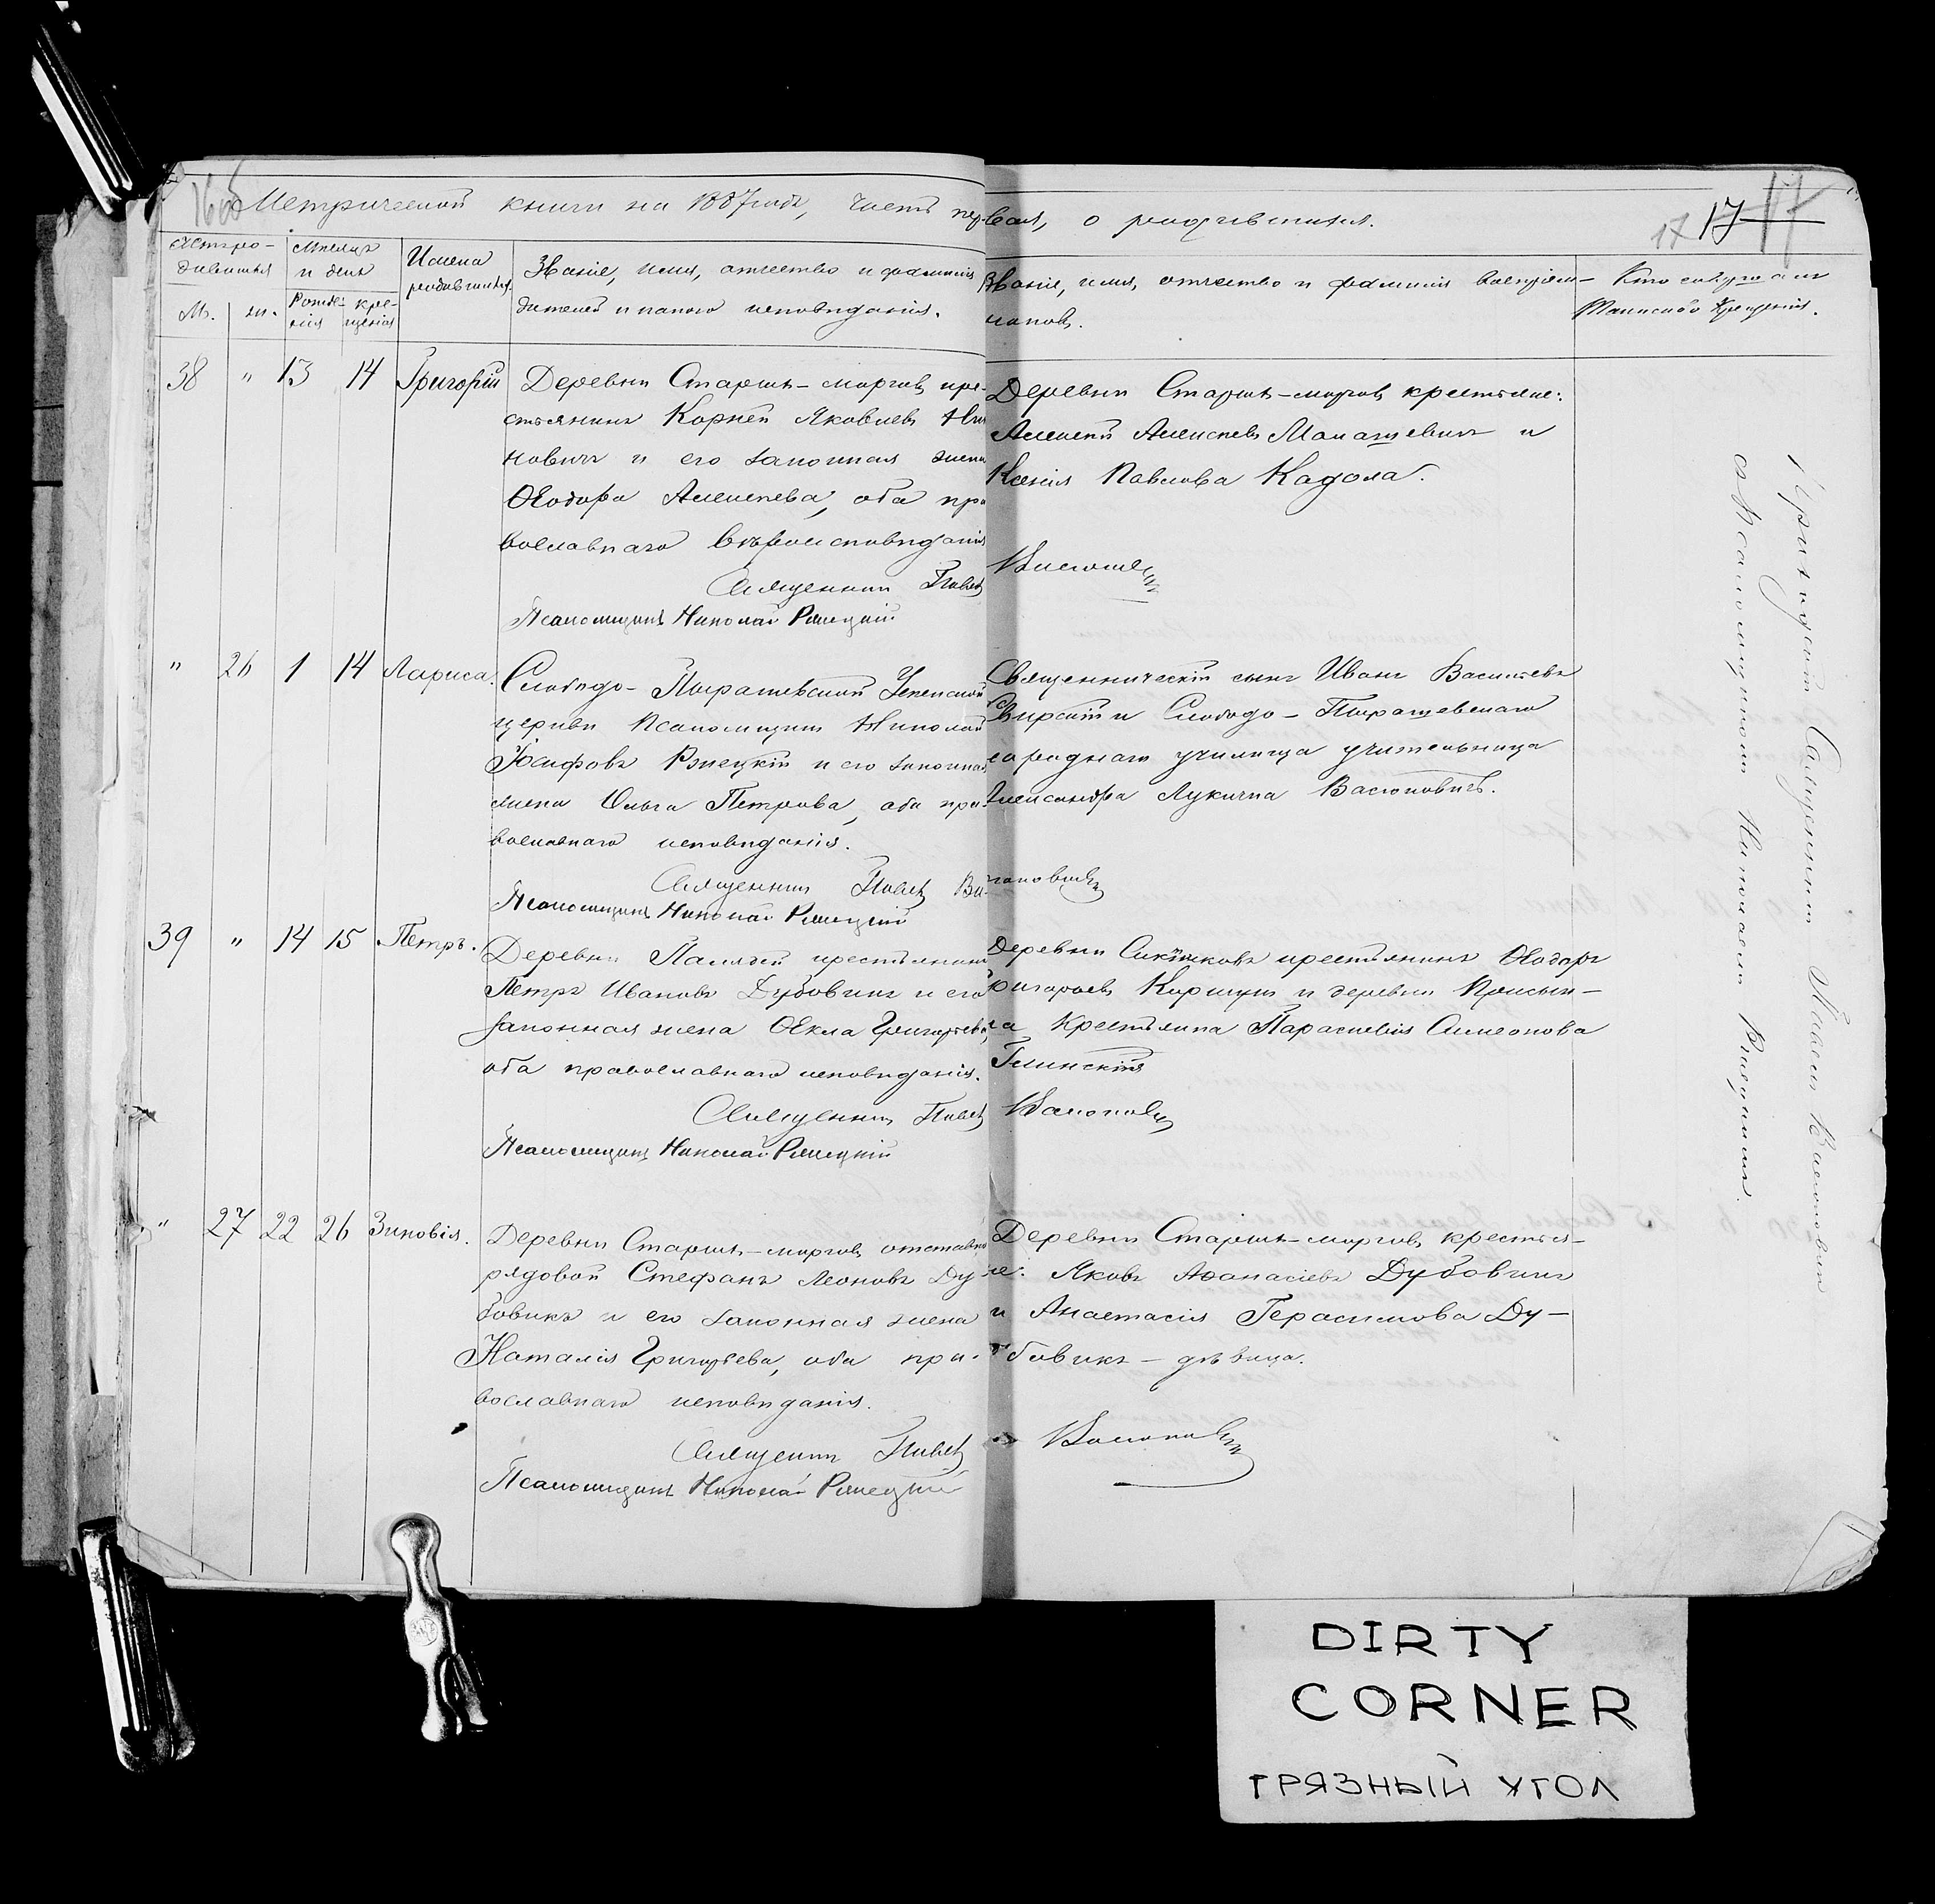 16об
Метрической книги на 1887 годъ, часть пер-вая, о родившихся.
17 17 17
Счетъ ро-
дившихся
М. ж.
Мѣсяцъ
и день
Рожде-
нія
кре-
щенія
Имена
родившихся.
Званіе, имя, отчество и фамилія
дителей и какого исповѣданія.
Званіе, имя, отчество и фамилія воспріем-
никовъ.
Кто совершалъ
Таинство Крещенія.
38 " 13 14 Григорій
Деревни Старыхъ-морговъ кре-
стьянинъ Корней Яковлевъ
новичъ и его законная жена
Ѳеодора Алексѣева, оба пра
вославнаго вѣроисповѣданія
Священникъ Павелъ
Псаломщикъ Николай Рылецкій
Деревни Старыхъ-морговъ крестьяне:
Алексѣй Алексѣевъ Макашевичъ и
Ксенія Павлова Кадола.
" 26 1 14 Лариса.
Слободо-Пырашевской Успенской
церкви псаломщикъ Николай
Іосифовъ и его законная
жена Ольга Петрова, оба пра-
вославнаго исповѣданія.
Священникъ Павелъ Ва-
Псаломщикъ Николай Рылецкій
Священническій сынъ Иванъ Васильевъ
и Слободо-Пырашевскаго
народнаго училища учительница
Александра Лукична
39 " 14 15 Петръ.
Деревни крестьянинъ
Петръ Ивановъ Дубовикъ и его
законная жена Ѳекла Григорьева,
оба православнаго исповѣданія.
Священникъ Павелъ
Псаломщикъ Николай Рылецкій
Деревни крестьянинъ Ѳеодоръ
Григорьевъ и деревни
крестьянка Параскевія Симеонова
" 27 22 26 Зиновія.
Деревни Старыхъ-морговъ отставной
рядовой Стефанъ Леоновъ Ду-
бовикъ и его законная жена
Наталія Григорьева, оба пра-
вославнаго исповѣданія.
Священникъ Павелъ
Псаломщикъ Николай Рылецкій
Деревни Старыхъ-морговъ крестья-
не: Яковъ Аѳанасіевъ Дубовикъ
и Анастасія Герасимова Ду-
бовикъ - дѣвица.
Приходскій Священникъ Павелъ
съ Псаломщикомъ Николаемъ
DIRTY
CORNER
ГРЯЗНЫЙ УГОЛ